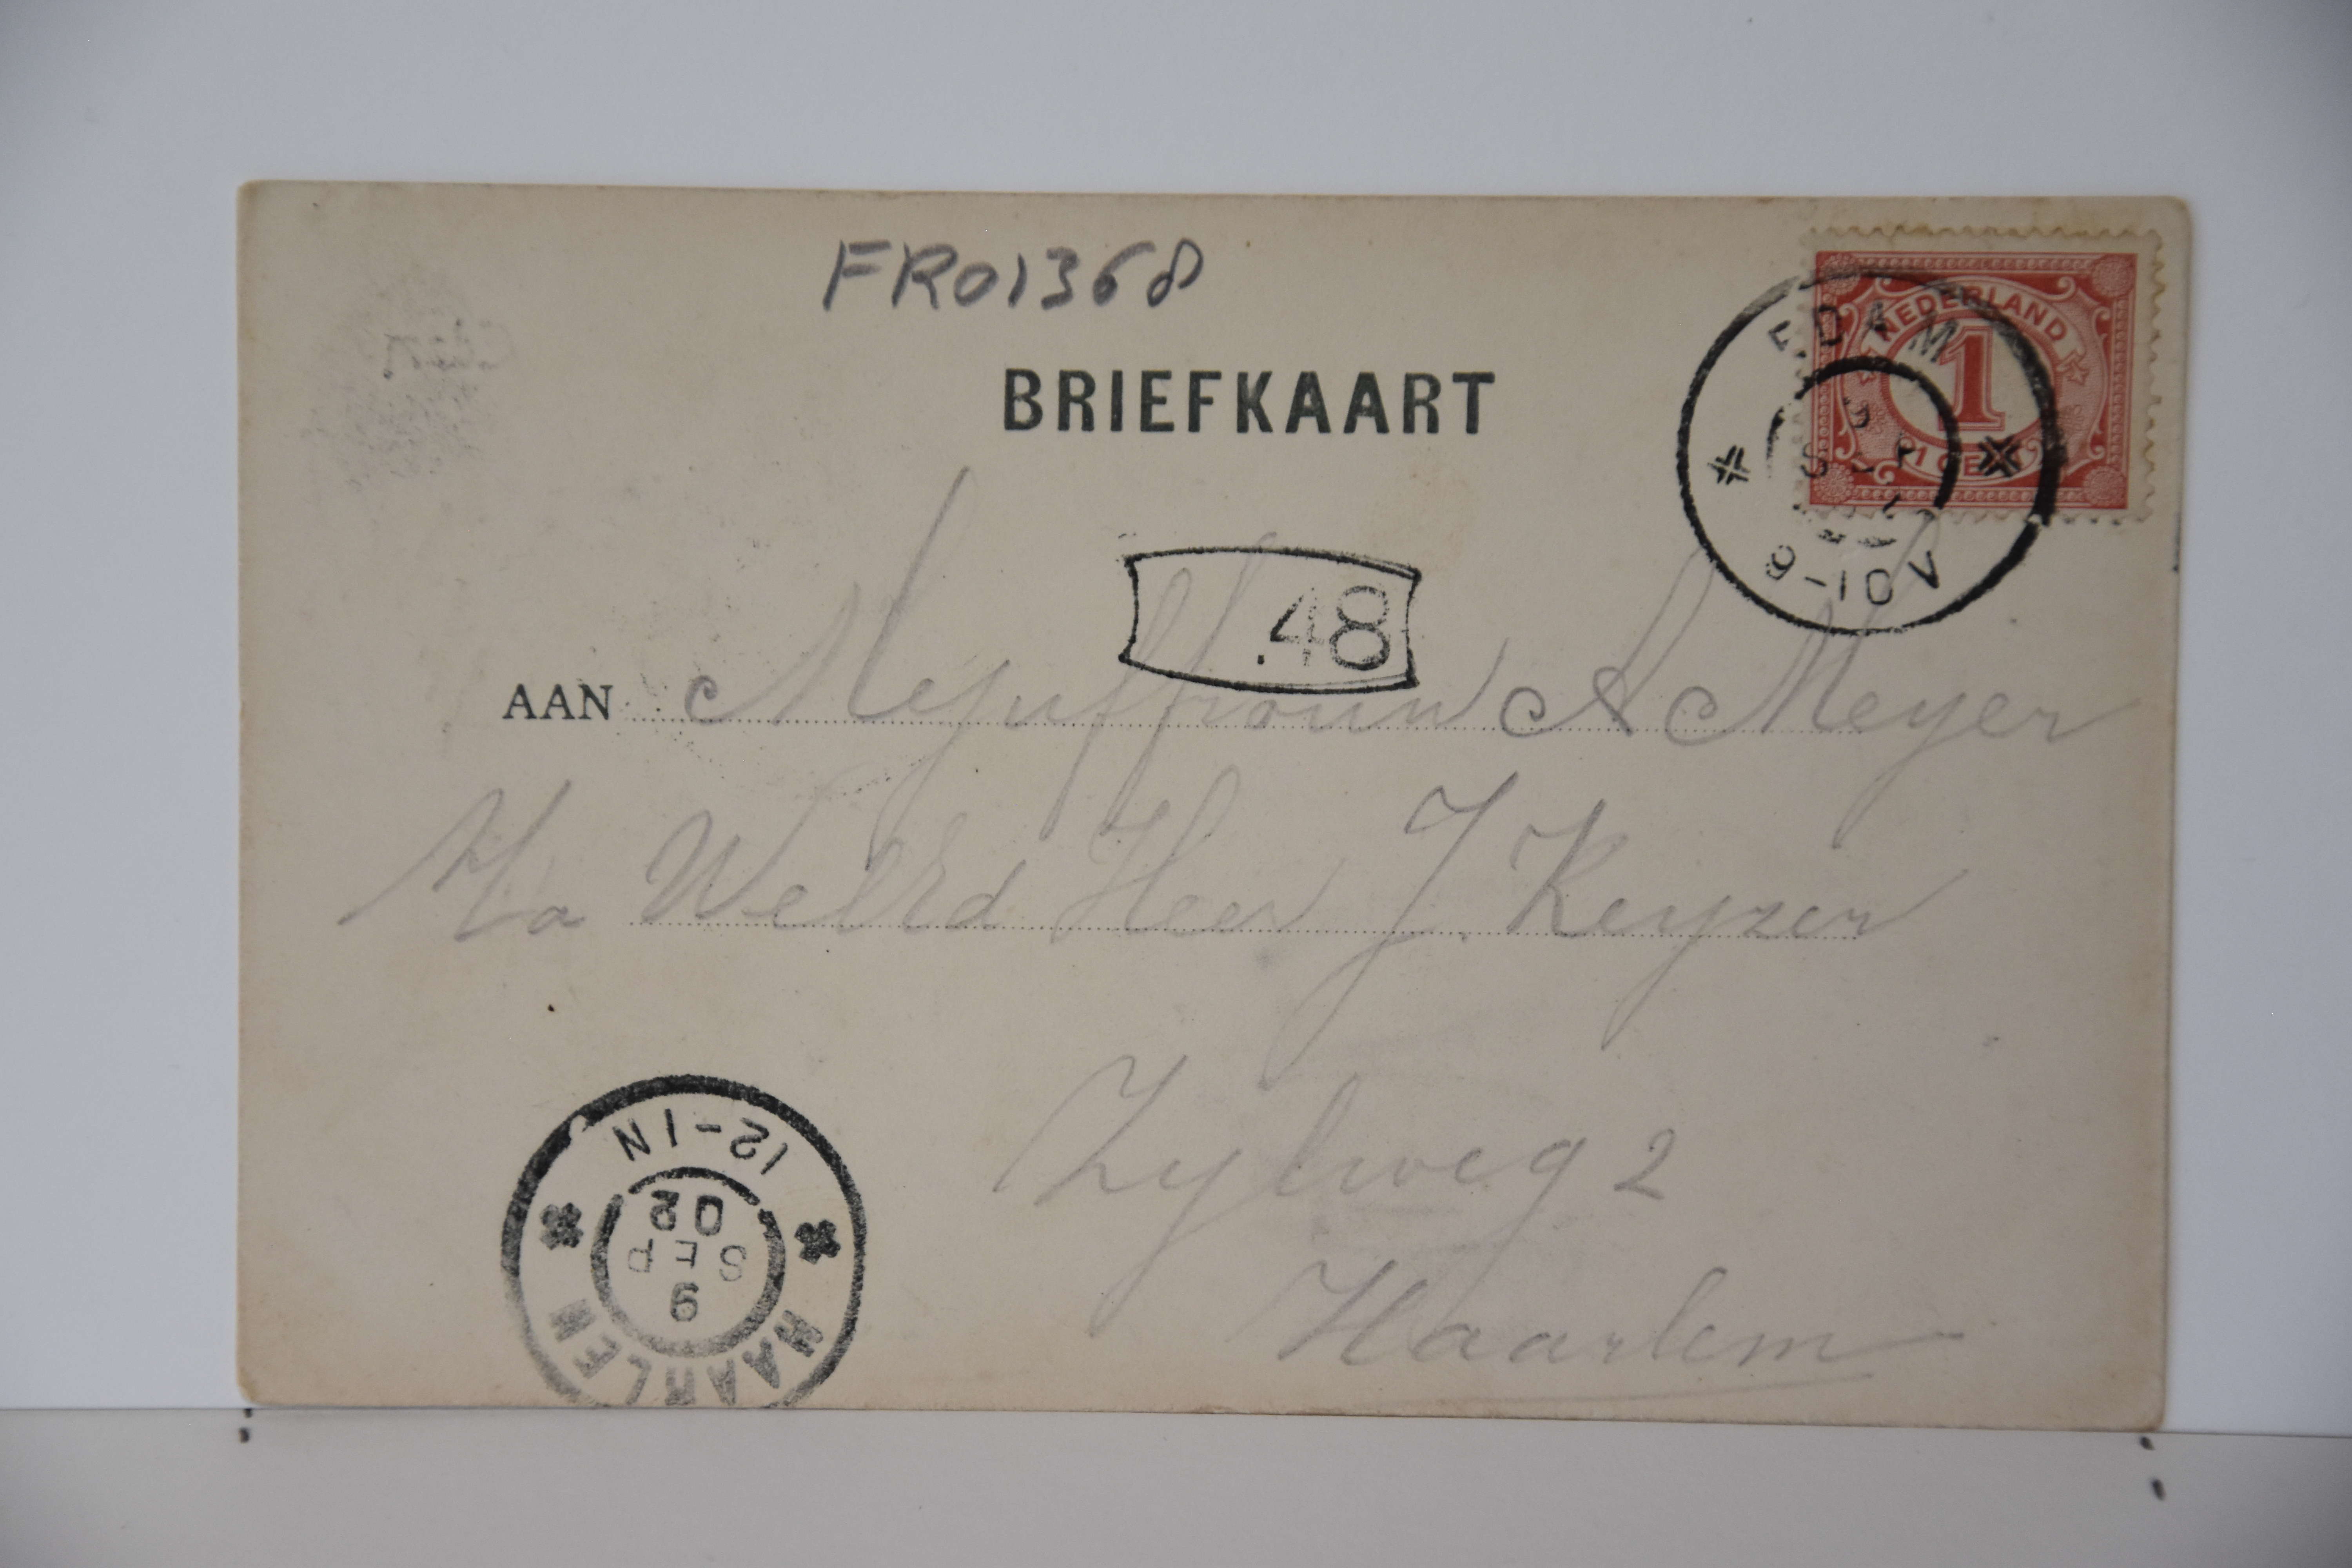 FR01368
BRIEFKAART
NEDERLAND
1
1 CENT
EDAM
9-10V
48
AAN Mejuffrouw A Meyer
H/a WelEd Heer J. Keyzer
Zylweg 2
Haarlem
12-1N
9
SEP
02
HAARLEM